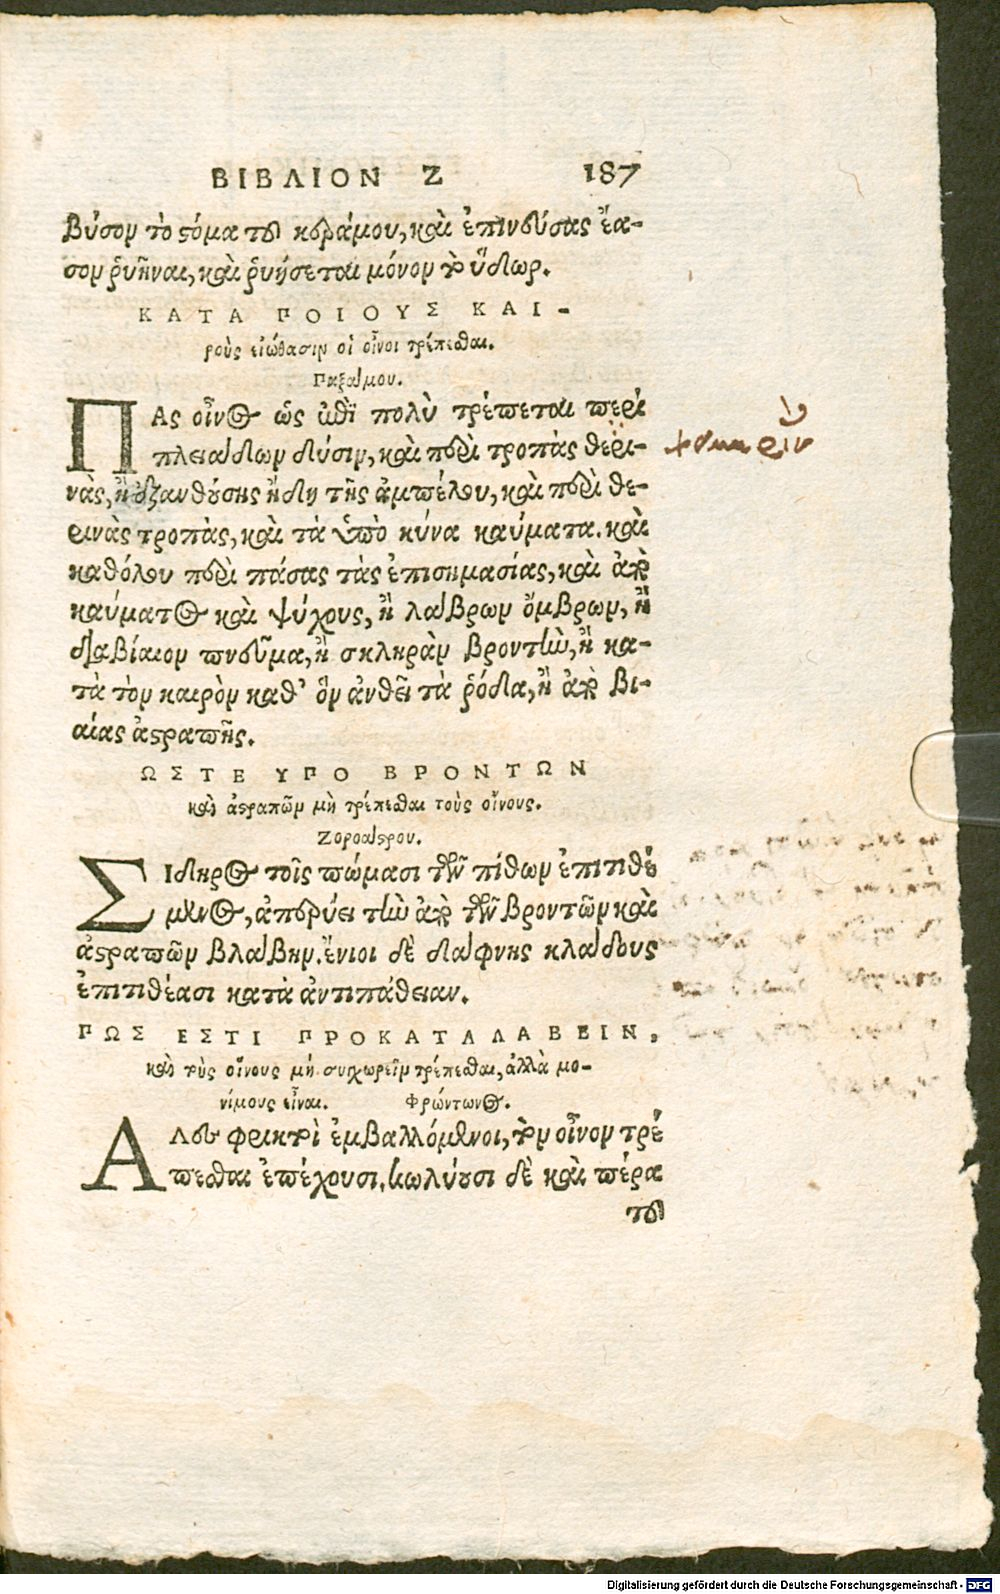 ΒΙΒΛΙΟΝ Ζ 187
βύσον τὸ ϛόμα τοῦ κεράμου, καὶ ἐπινεύσας ἔα-
σον ῥυῆναι, καὶ ῥυήσεται μόνον τὸ ὕδωρ.
ΚΑΤΑ ΠΟΙΟΥΣ ΚΑΙ-
ροὺς εἰώθασιν οἱ οἶνοι τρέπεσθαι.
Παξάμου.
ΠΑς οἶνος ὡς ἐπὶ πολὺ τρέπεται περὶ
πλειάδων δύσιν, καὶ περὶ τροπὰς θερι-
νὰς, ἢ ἐξανθούσης ἤδη τῆς ἀμπέλου, καὶ περὶ θε-
ρινὰς τροπὰς, καὶ τὰ ὑπὸ κύνα καύματα. καὶ
καθόλου περὶ πάσας τὰς ἐπισημασίας, καὶ διὰ
καύματος καὶ ψύχους, ἢ λάβρων ὄμβρων, ἢ
διαβίαιον πνεῦμα, ἢ σκληρὰν βροντὴν, ἢ κα-
τὰ τὸν καιρὸν καθ' ὃν ἀνθεῖ τὰ ῥόδα, ἢ διὰ βι-
αίας ἀϛραπῆς.
ΩΣΤΕ ΥΠΟ ΒΡΟΝΤΩΝ
καὶ ἀϛραπῶν μὴ τρέπεσθαι τοὺς οἴνους.
Ζοροάϛρου.
ΣΙδηρος τοῖς πώμασι τῶν πίθων ἐπιτιθέ
μενος, ἀπερύει τὴν διὰ τῶν βροντῶν καὶ
ἀϛραπῶν βλάβην. ἔνιοι δὲ δάφνης κλάδους
ἐπιτιθέασι κατὰ ἀντιπάθειαν.
ΠΩΣ ΕΣΤΙ ΠΡΟΚΑΤΑΛΑΒΕΙΝ,
καὶ τοὺς οἴνους μὴ συγχωρεῖν τρέπεσθαι, ἀλλὰ μο-
νίμους εἶναι. Φρόντωνος.
ΑΛες φρικτοὶ ἐμβαλλόμενοι, τὸν οἶνον τρέ
πεσθαι ἐπέχουσι, κωλύουσι δὲ καὶ πέρα
τοῦ
Digitalisierung gefördert durch die Deutsche Forschungsgemeinschaft - DFG